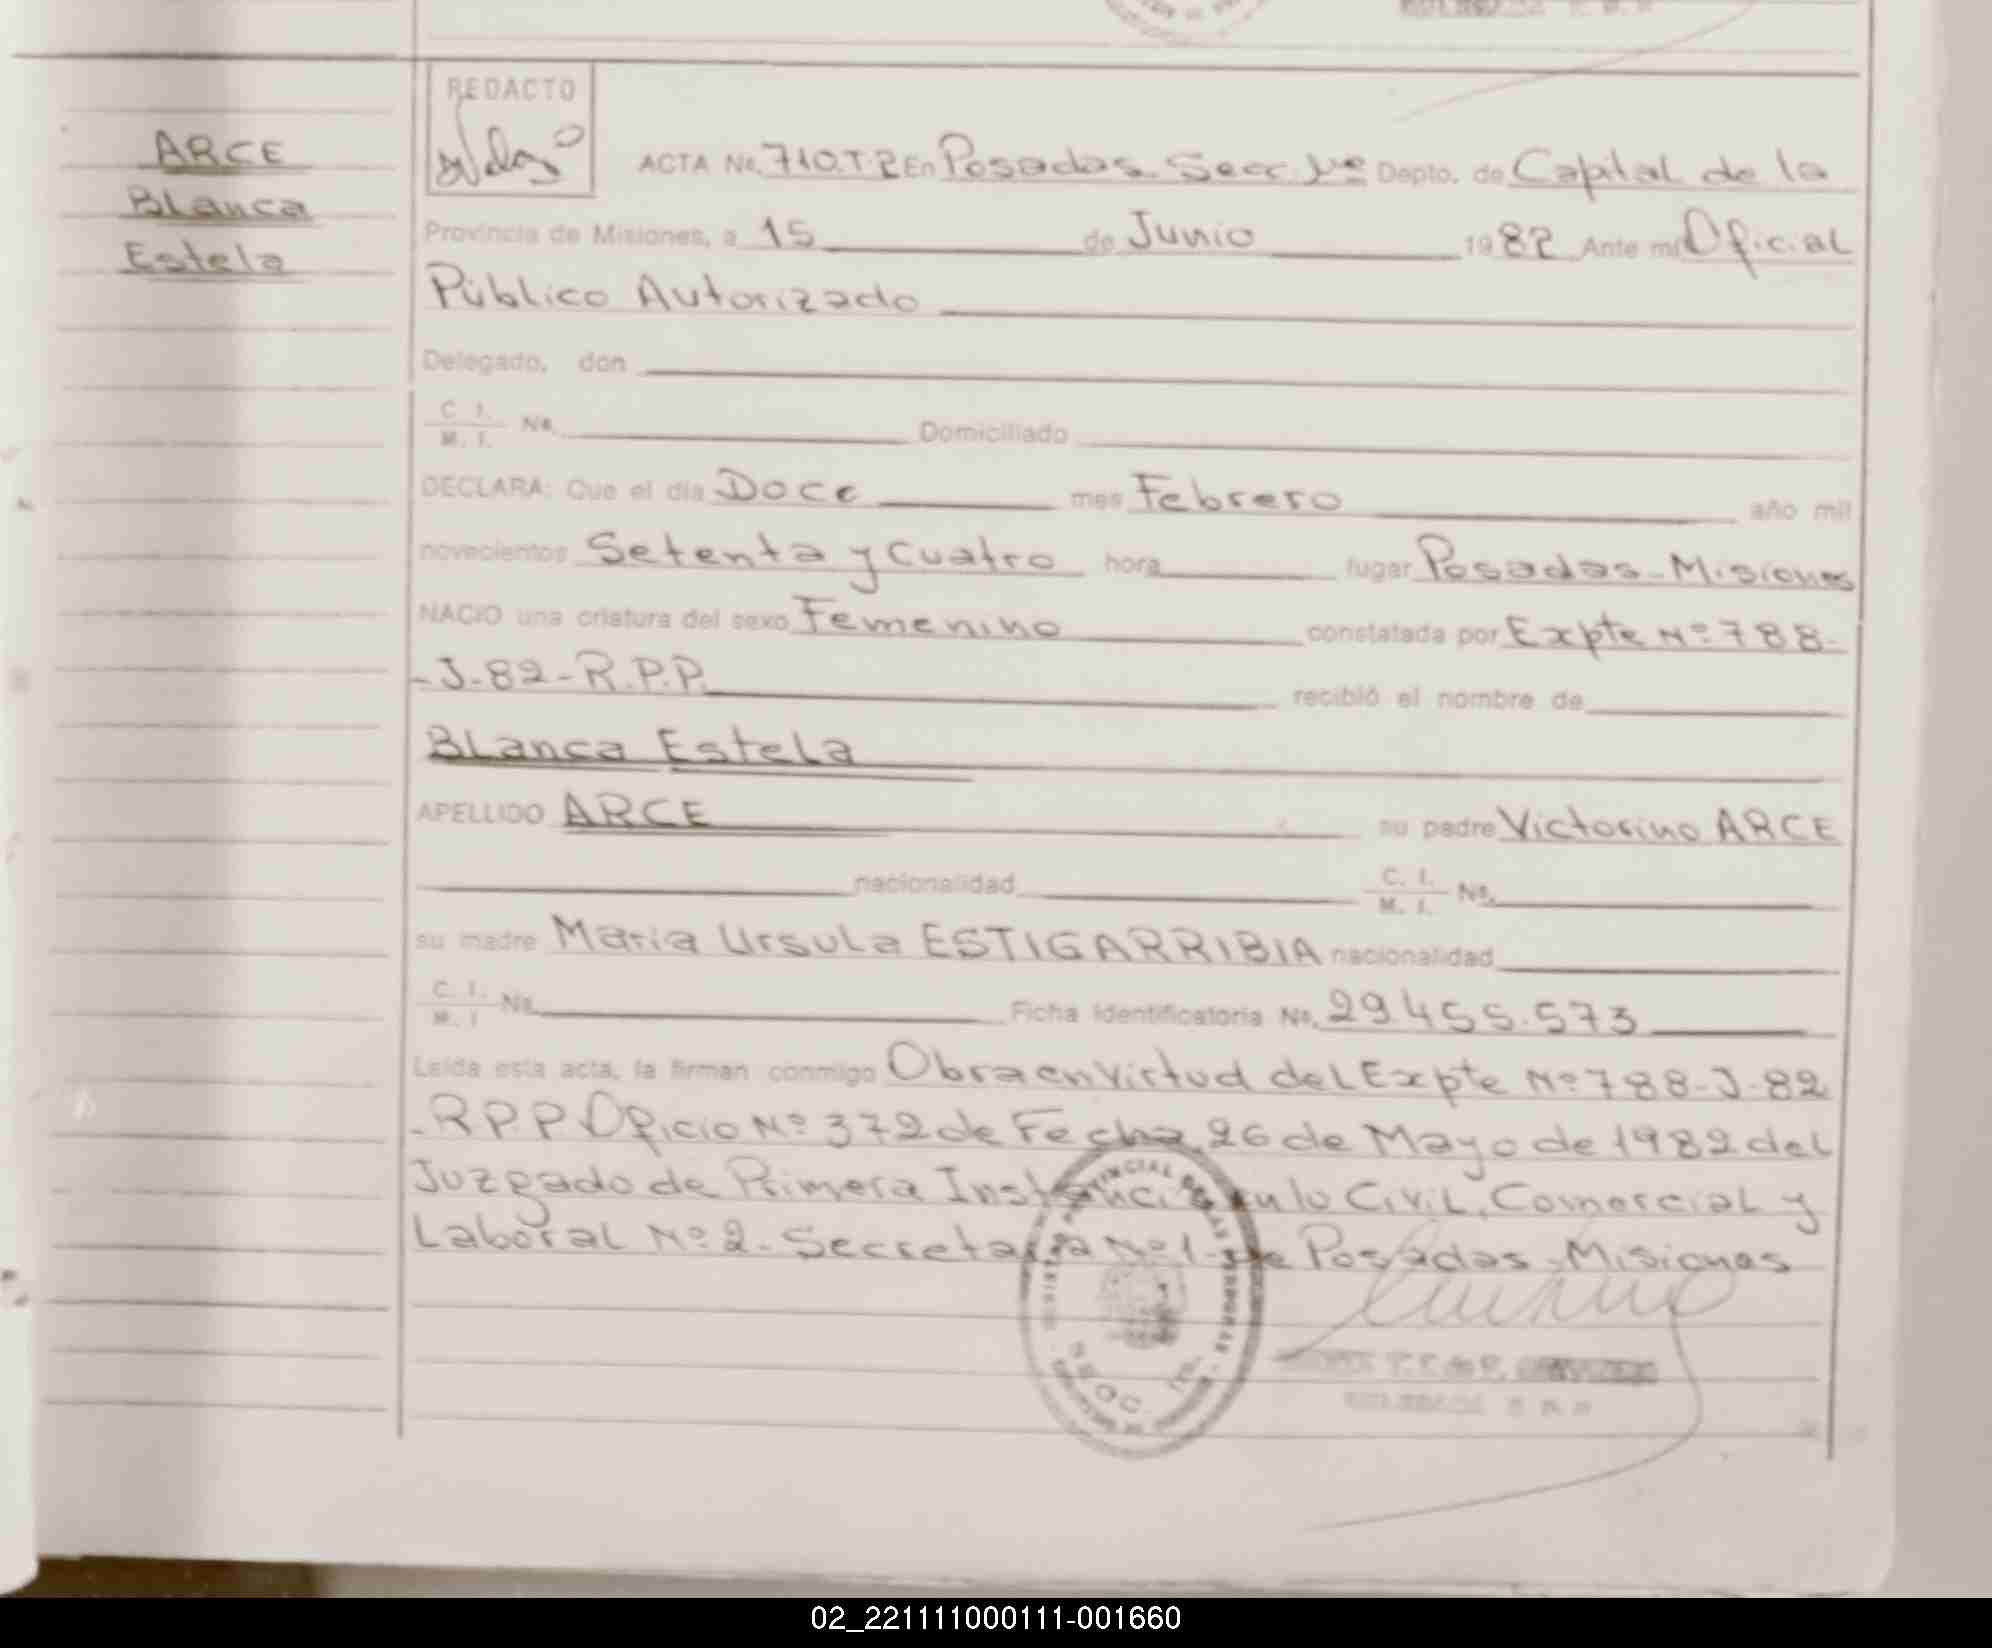 ARCE
Blanca
Estela
REDACTO
ACTA No. 710.T-2 En Posadas Secc. 1ra Depto. de Capital de la
Provincia de Misiones, a 15 de Junio 1982 Ante mí Oficial
Público Autorizado
Delegado, don
C. I. / M. I. No. Domiciliado
DECLARA: Que el día Doce mes Febrero año mil
novecientos Setenta y Cuatro hora lugar Posadas-Misiones
NACIO una criatura del sexo Femenino constatada por Expte Nº 788-
-J-82-R.P.P. recibió el nombre de
Blanca Estela
APELLIDO ARCE su padre Victorino ARCE
nacionalidad C. I. / M. I. No.
su madre Maria Ursula ESTIGARRIBIA nacionalidad
C. I. / M. I No. Ficha Identificatoria No. 29.455.573
Leída esta acta, la firman conmigo Obra en Virtud del Expte Nº 788-J-82
-RPP Oficio Nº 372 de Fecha 26 de Mayo de 1982 del
Juzgado de Primera Instancia en lo Civil, Comercial y
Laboral Nº 2 - Secretaria Nº 1 - de Posadas - Misiones
02_221111000111-001660